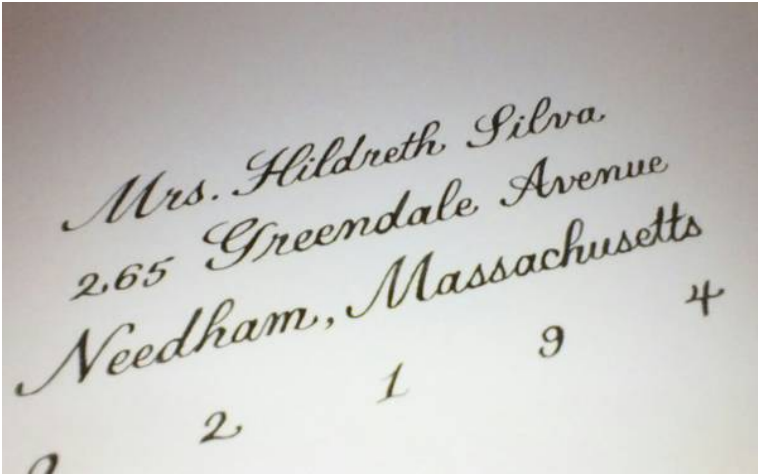 Mrs. Hildreth Silva
265 Greendale Avenue
Needham, Massachusetts
2 1 9 4